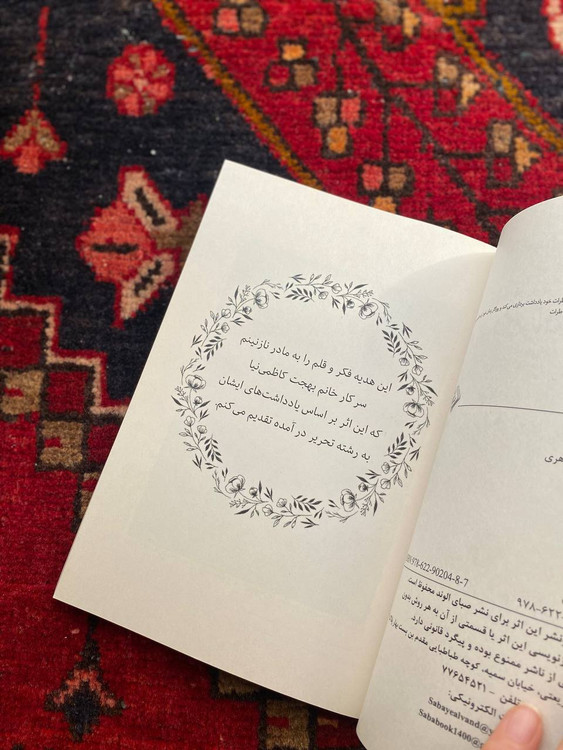 این هدیه فکر و قلم را به مادر نازنینم
سرکار خانم بهجت کاظمی‌نیا
که این اثر بر اساس یادداشت‌های ایشان
به رشته تحریر در آمده تقدیم می‌کنم.
خاطرات خود یادداشت برداری می‌کند و
هری
978-622-90204-8-7
۹۷۸-۶۲۲
نشر این اثر برای نشر صبای الوند محفوظ است
نویسی این اثر یا قسمتی از آن به هر روش بدون
از ناشر ممنوع بوده و پیگرد قانونی دارد.
خیابان سمیه، کوچه طباطبایی مقدم، بن بست بهار
تلفن - ۷۷۶۵۴۵۲۱
الکترونیکی:
Sabayealvand@
Sababook1400@